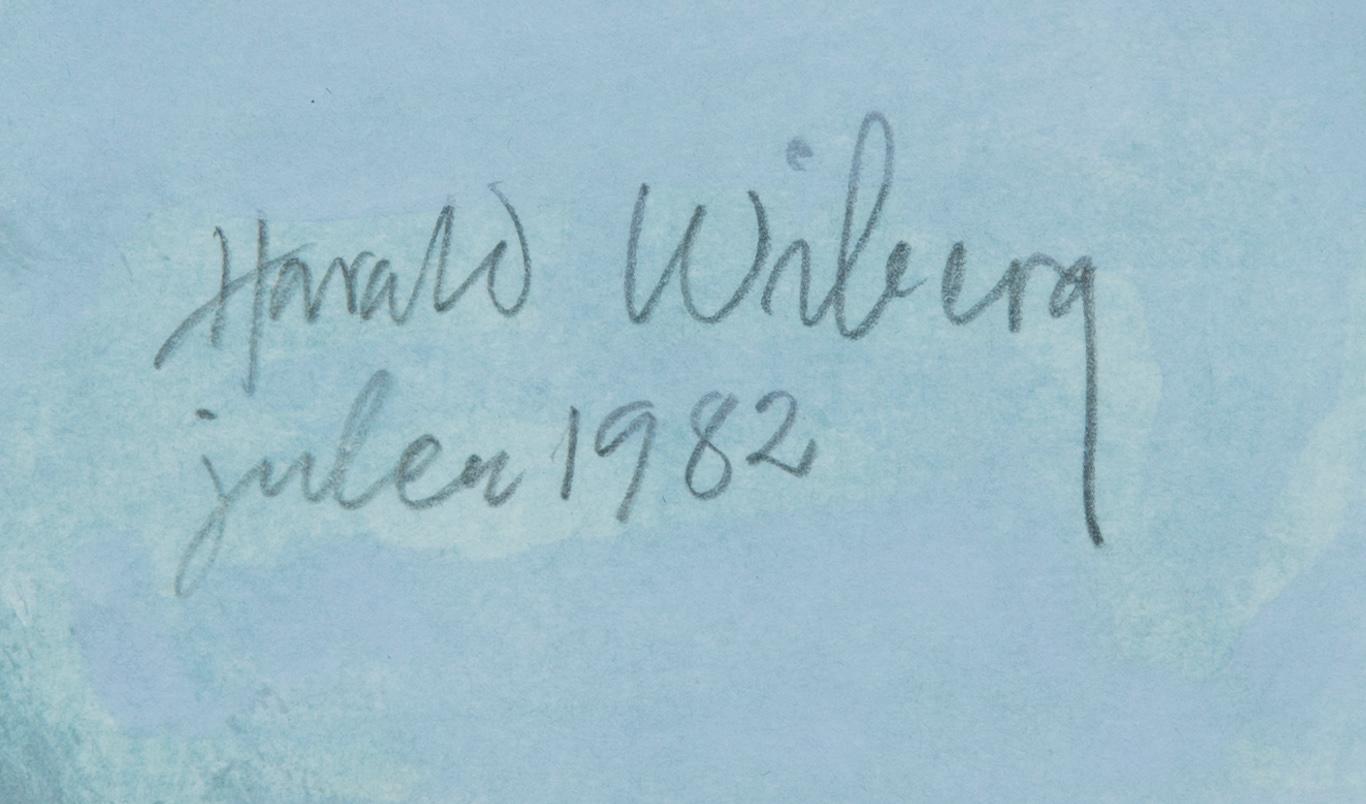 Harald Wiberg
julen 1982